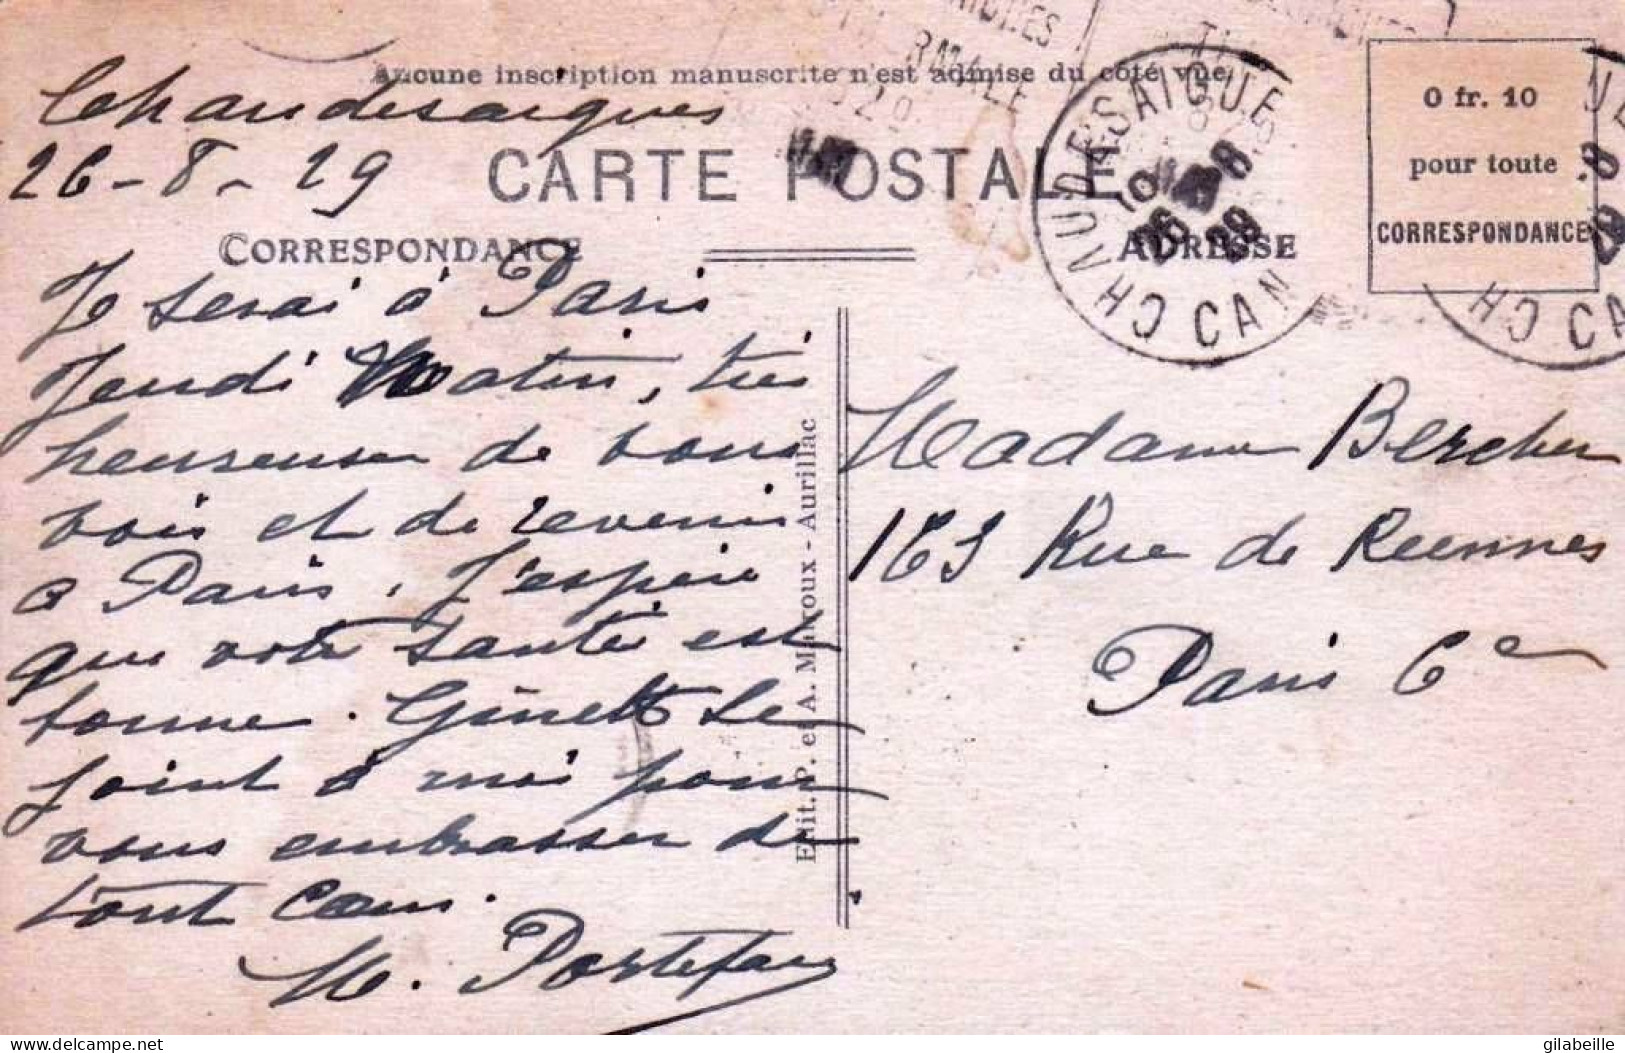 Aucune inscription manuscrite n'est admise du côté vue
Chaudesaigues
26-8-29
CARTE POSTALE
CORRESPONDANCE
ADRESSE
CHAUDESAIGUES
CANT
0 fr. 10
pour toute
CORRESPONDANCE
Je serai à Paris
Jeudi Matin, très
heureuse de vous
voir et de revenir
a Paris. J'espère
que votre santé est
bonne. Ginette se
joint à moi pour
vous embrasser de
tout Cœur.
Edit. P. et A. Malroux - Aurillac
Madame Bercher
163 Rue de Reennes
Paris 6e
delcampe.net
gilabeille